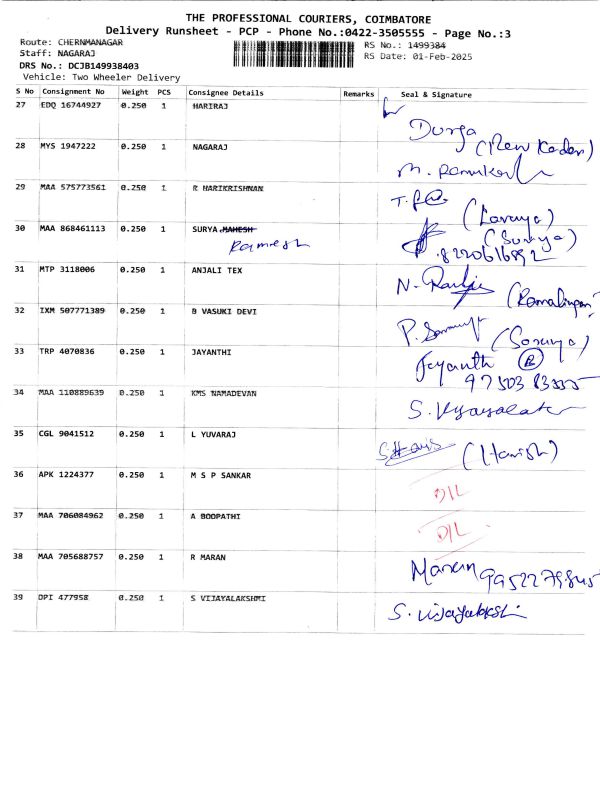 THE PROFESSIONAL COURIERS, COIMBATORE
Delivery Runsheet - PCP - Phone No.:0422-3505555 - Page No.:3
Route: CHERNMANAGAR
Staff: NAGARAJ
DRS No.: DCJB149938403
Vehicle: Two Wheeler Delivery
RS No.: 1499384
RS Date: 01-Feb-2025
S No Consignment No Weight PCS Consignee Details Remarks Seal & Signature
27 EDQ 16744927 0.250 1 HARIRAJ
Durga
28 MYS 1947222 0.250 1 NAGARAJ
29 MAA 575773561 0.250 1 R HARIKRISHNAN
(Lavanya)
30 MAA 868461113 0.250 1 SURYA MAHESH
Ramesh
(Surya)
8220616892
31 MTP 3118006 0.250 1 ANJALI TEX
(Ramalingam)
32 IXM 507771389 0.250 1 B VASUKI DEVI
33 TRP 4070836 0.250 1 JAYANTHI
Jayanth
34 MAA 110889639 0.250 1 KMS NAMADEVAN
35 CGL 9041512 0.250 1 L YUVARAJ
(Harish)
36 APK 1224377 0.250 1 M S P SANKAR
D/L
37 MAA 706084962 0.250 1 A BOOPATHI
D/L
38 MAA 705688757 0.250 1 R MARAN
Maran 9952279845
39 DPI 477958 0.250 1 S VIJAYALAKSHMI